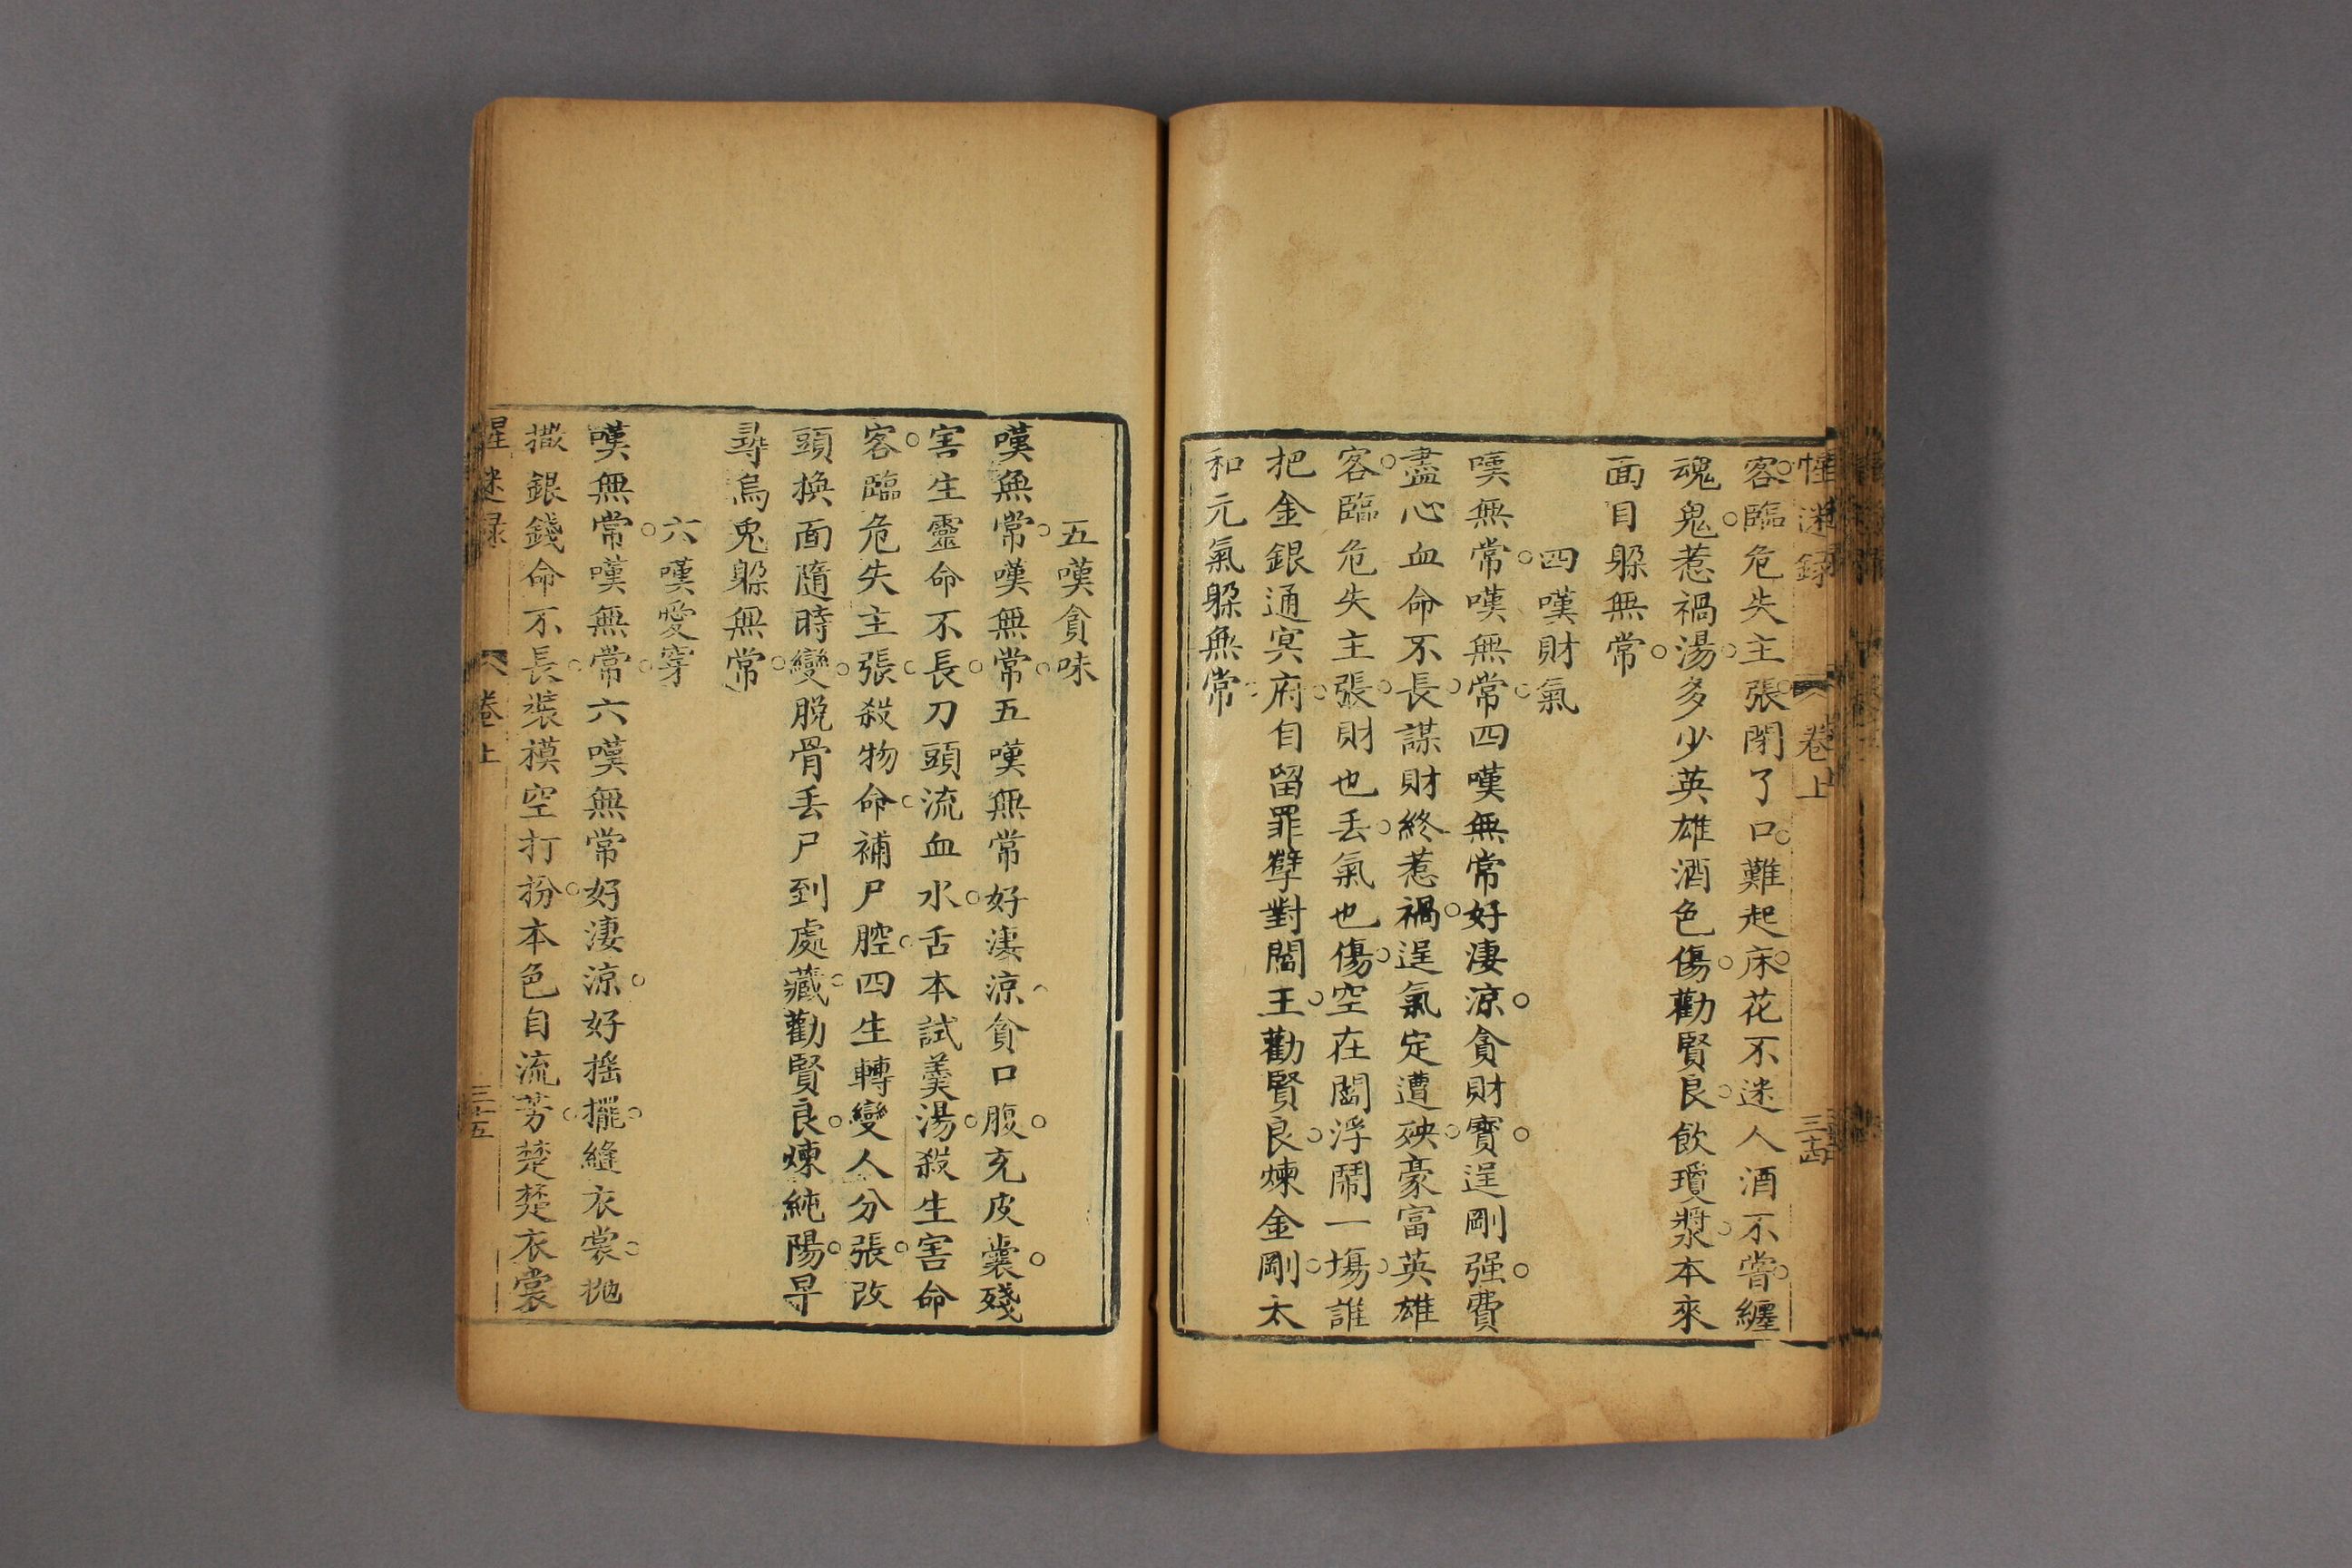 惺迷録 卷上 三十四
客臨危失主張閉了口難起床花不迷人酒不嘗纏
魂鬼惹禍湯多少英雄酒色傷勸賢良飲瓊漿本來
面目躱無常
四嘆財氣
嘆無常嘆無常四嘆無常好淒涼貪財寳逞剛强費
盡心血命不長謀財終惹禍逞氣定遭殃豪富英雄
客臨危失主張財也丢氣也傷空在閻浮鬧一塲誰
把金銀通冥府自留罪孽對閻王勸賢良煉金剛太
和元氣躱無常
五嘆貪味
嘆無常嘆無常五嘆無常好淒涼貪口腹充皮囊殘
害生靈命不長刀頭流血水舌本試羹湯殺生害命
客臨危失主張殺物命補尸腔四生轉變人分張改
頭換面隨時變脫骨丢尸到處藏勸賢良煉純陽早
尋烏兎躱無常
六嘆愛穿
嘆無常嘆無常六嘆無常好淒涼好摇擺縫衣裳抛
撒銀錢命不長裝模空打扮本色自流芳楚楚衣裳
惺迷録 卷上 三十五